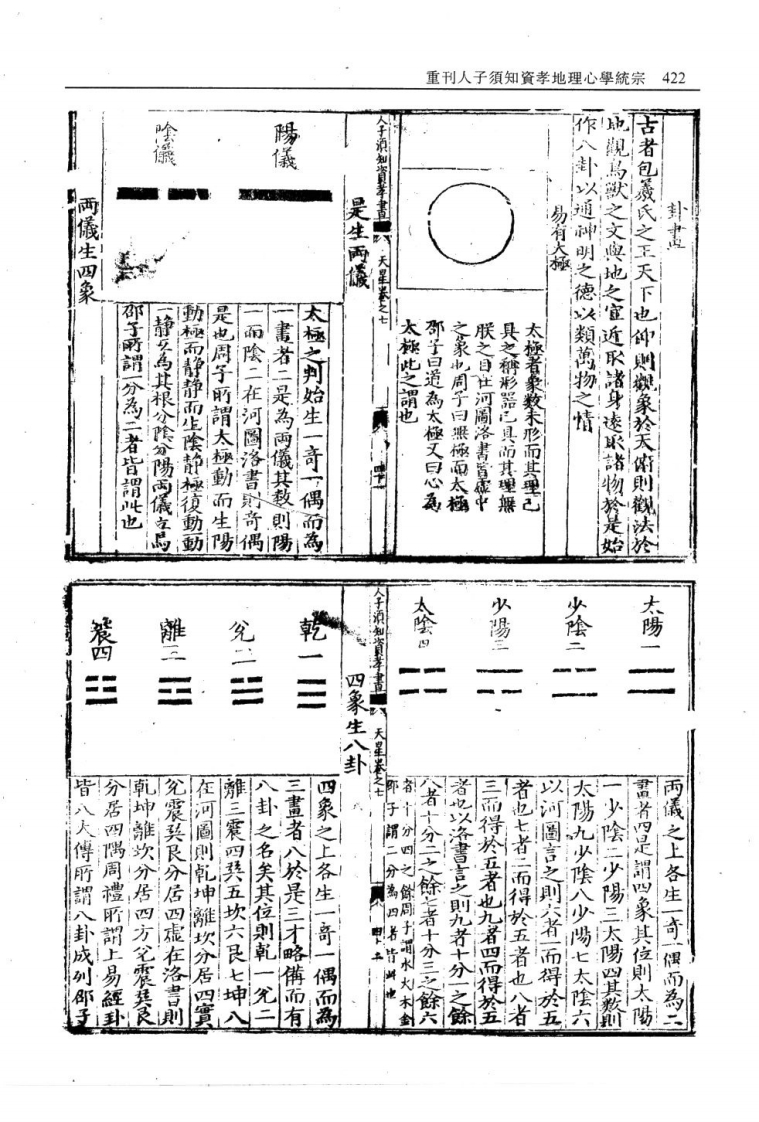 重刊人子須知資孝地理心學統宗 422
卦畫
古者包羲氏之王天下也仰則觀象於天俯則觀法於
地觀鳥獸之文與地之宜近取諸身遠取諸物於是始
作八卦以通神明之德以類萬物之情
易有太極
太極者象數未形而其理已
具之稱形器已具而其理無
朕之目在河圖洛書皆虛中
之象也周子曰無極而太極
邵子曰道為太極又曰心為
太極此之謂也
人子須知資孝書 天星卷之七
是生兩儀
陽儀
陰儀
太極之判始生一奇一偶而為
一畫者二是為兩儀其數則陽
一而陰二在河圖洛書則奇偶
是也周子所謂太極動而生陽
動極而靜靜而生陰靜極復動動
一靜互為其根分陰分陽兩儀立焉
邵子所謂一分為二者皆謂此也
兩儀生四象
太陽一
少陰二
少陽三
太陰四
兩儀之上各生一奇一偶而為二
畫者四是謂四象其位則太陽
一少陰二少陽三太陽四其數則
太陽九少陰八少陽七太陰六
以河圖言之則六者一而得於五
者也七者二而得於五者也八者
三而得於五者也九者四而得於五
者也以洛書言之則九者十分一之餘
八者十分二之餘七者十分三之餘六
者十分四之餘周子謂水火木金
邵子謂二分為四者皆此也
人子須知資孝書 天星卷之七
四象生八卦
乾一
兌二
離三
震四
四象之上各生一奇一偶而為
三畫者八於是三才略備而有
八卦之名矣其位則乾一兌二
離三震四巽五坎六艮七坤八
在河圖則乾坤離坎分居四實
兌震巽艮分居四虛在洛書則
乾坤離坎分居四方兌震巽艮
分居四隅周禮所謂上易經卦
皆八大傳所謂八卦成列邵子